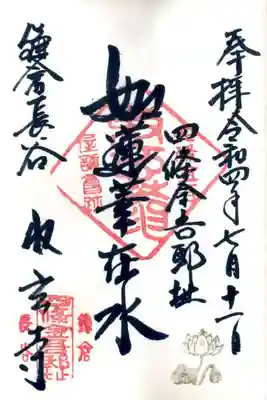 奉拝令和四年七月十一日
四條金吾邸址
如蓮華在水
鎌倉長谷
収玄寺
鎌倉
長谷